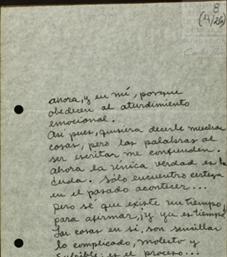 8
(4/26)
ahora, y en mí, porque
obedecen al aturdimiento
emocional.
Así pues, quisiera decirle muchas
cosas, pero las palabras al
ser escritas me confunden.
Ahora la única verdad es la
duda. Sólo encuentro certeza
en el pasado acontecer...
Pero sé que existe un tiempo
para afirmar, y ya es tiempo
Las cosas en sí, son sencillas
lo complicado, molesto y
es el proceso...